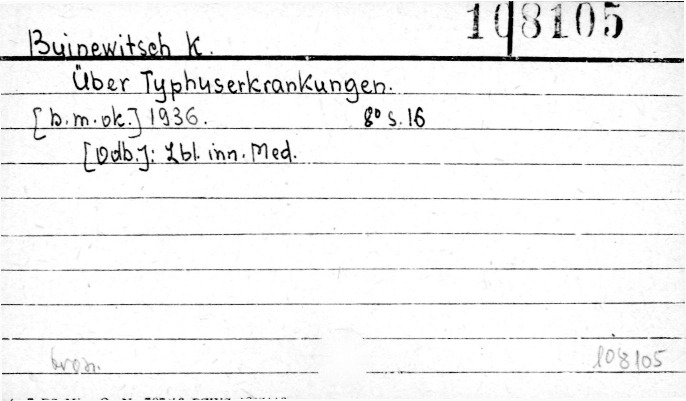 108105
Buinewitsch K.
Über Typhuserkrankungen.
[b.m.ok.] 1936. 8° s. 16
[Odb.]: Zbl. inn. Med.
brosz.
108105